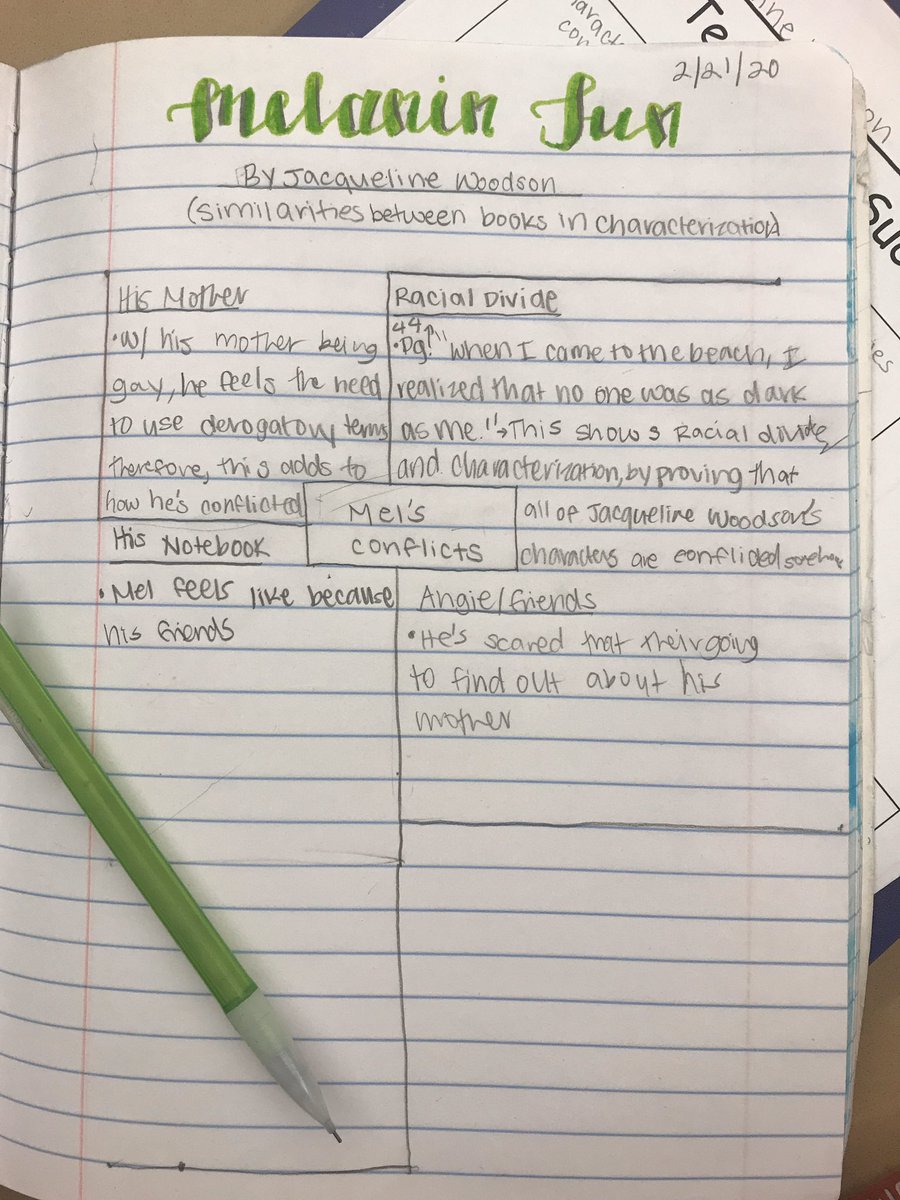 2/21/20
Melanin Sun
By Jacqueline Woodson
(similarities between books in characterization)
His Mother
•w/ his mother being
gay, he feels the need
to use derogatory terms
therefore, this adds to
how he's conflicted
Racial Divide
44
•Pg. "when I came to the beach, I
realized that no one was as dark
as me."→This shows Racial divide,
and characterization, by proving that
all of Jacqueline Woodson's
characters are conflicted somehow
Mel's
conflicts
His Notebook
•Mel feels like because
his friends
Angie/friends
•He's scared that their going
to find out about his
mother
Te